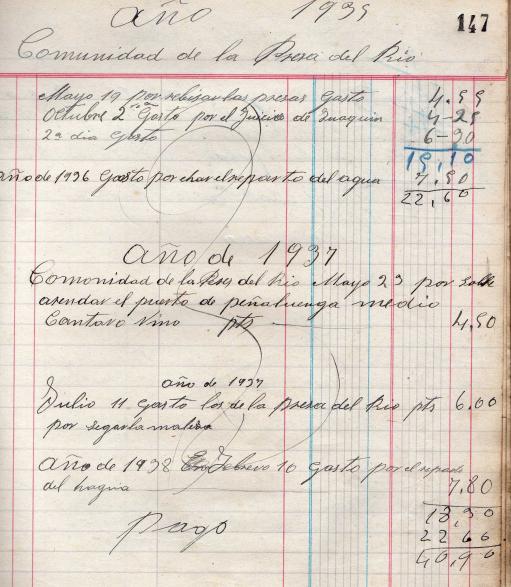 año 1935
147
Comunidad de la Presa del Rio
Mayo 19 por rebisar las presas Gasto 4.55
Octubre 2 Gasto por el Juicio de Juaquin 4-25
2ª dia Gasto 6-30
15,10
año de 1936 Gasto por echar el reparto del agua 7,50
22,60
año de 1937
Comonidad de la Presa del Rio Mayo 23 por
arendar el puerto de peñaluenga medio
Cantaro Vino pts 4,50
año de 1937
Julio 11 Gasto los de la presa del Rio pts 6.00
por segar la maleza
año de 1938 Febrero 10 Gasto por el reparto
del hagua 7.80
18,30
22 60
40,90
pago